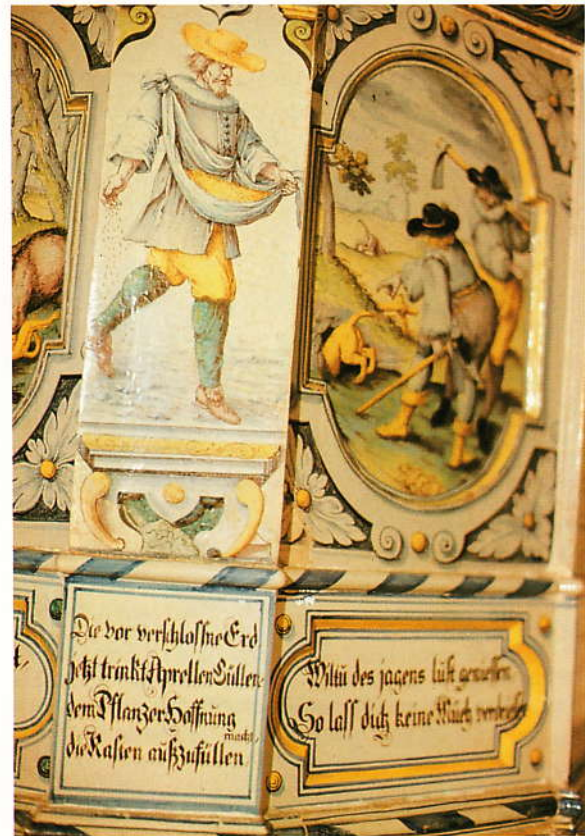 t,
Die vor verschlossne Erd
jetzt trinkt Aprellen Süllen
dem Pflanzer Hoffnung
macht,
die Kasten außzufüllen
Wiltu des jagens lust geniessen
So lass dich keine Müeh verdriessen